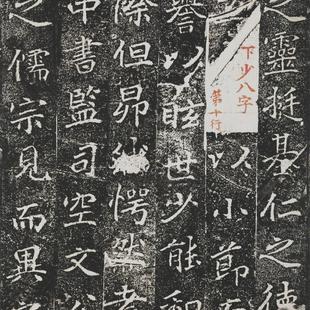 之靈挺基仁之德
下少八字
第十行
以小節
譽以眩世少能
際但昴然愕然
中書監司空文
儒宗見而異